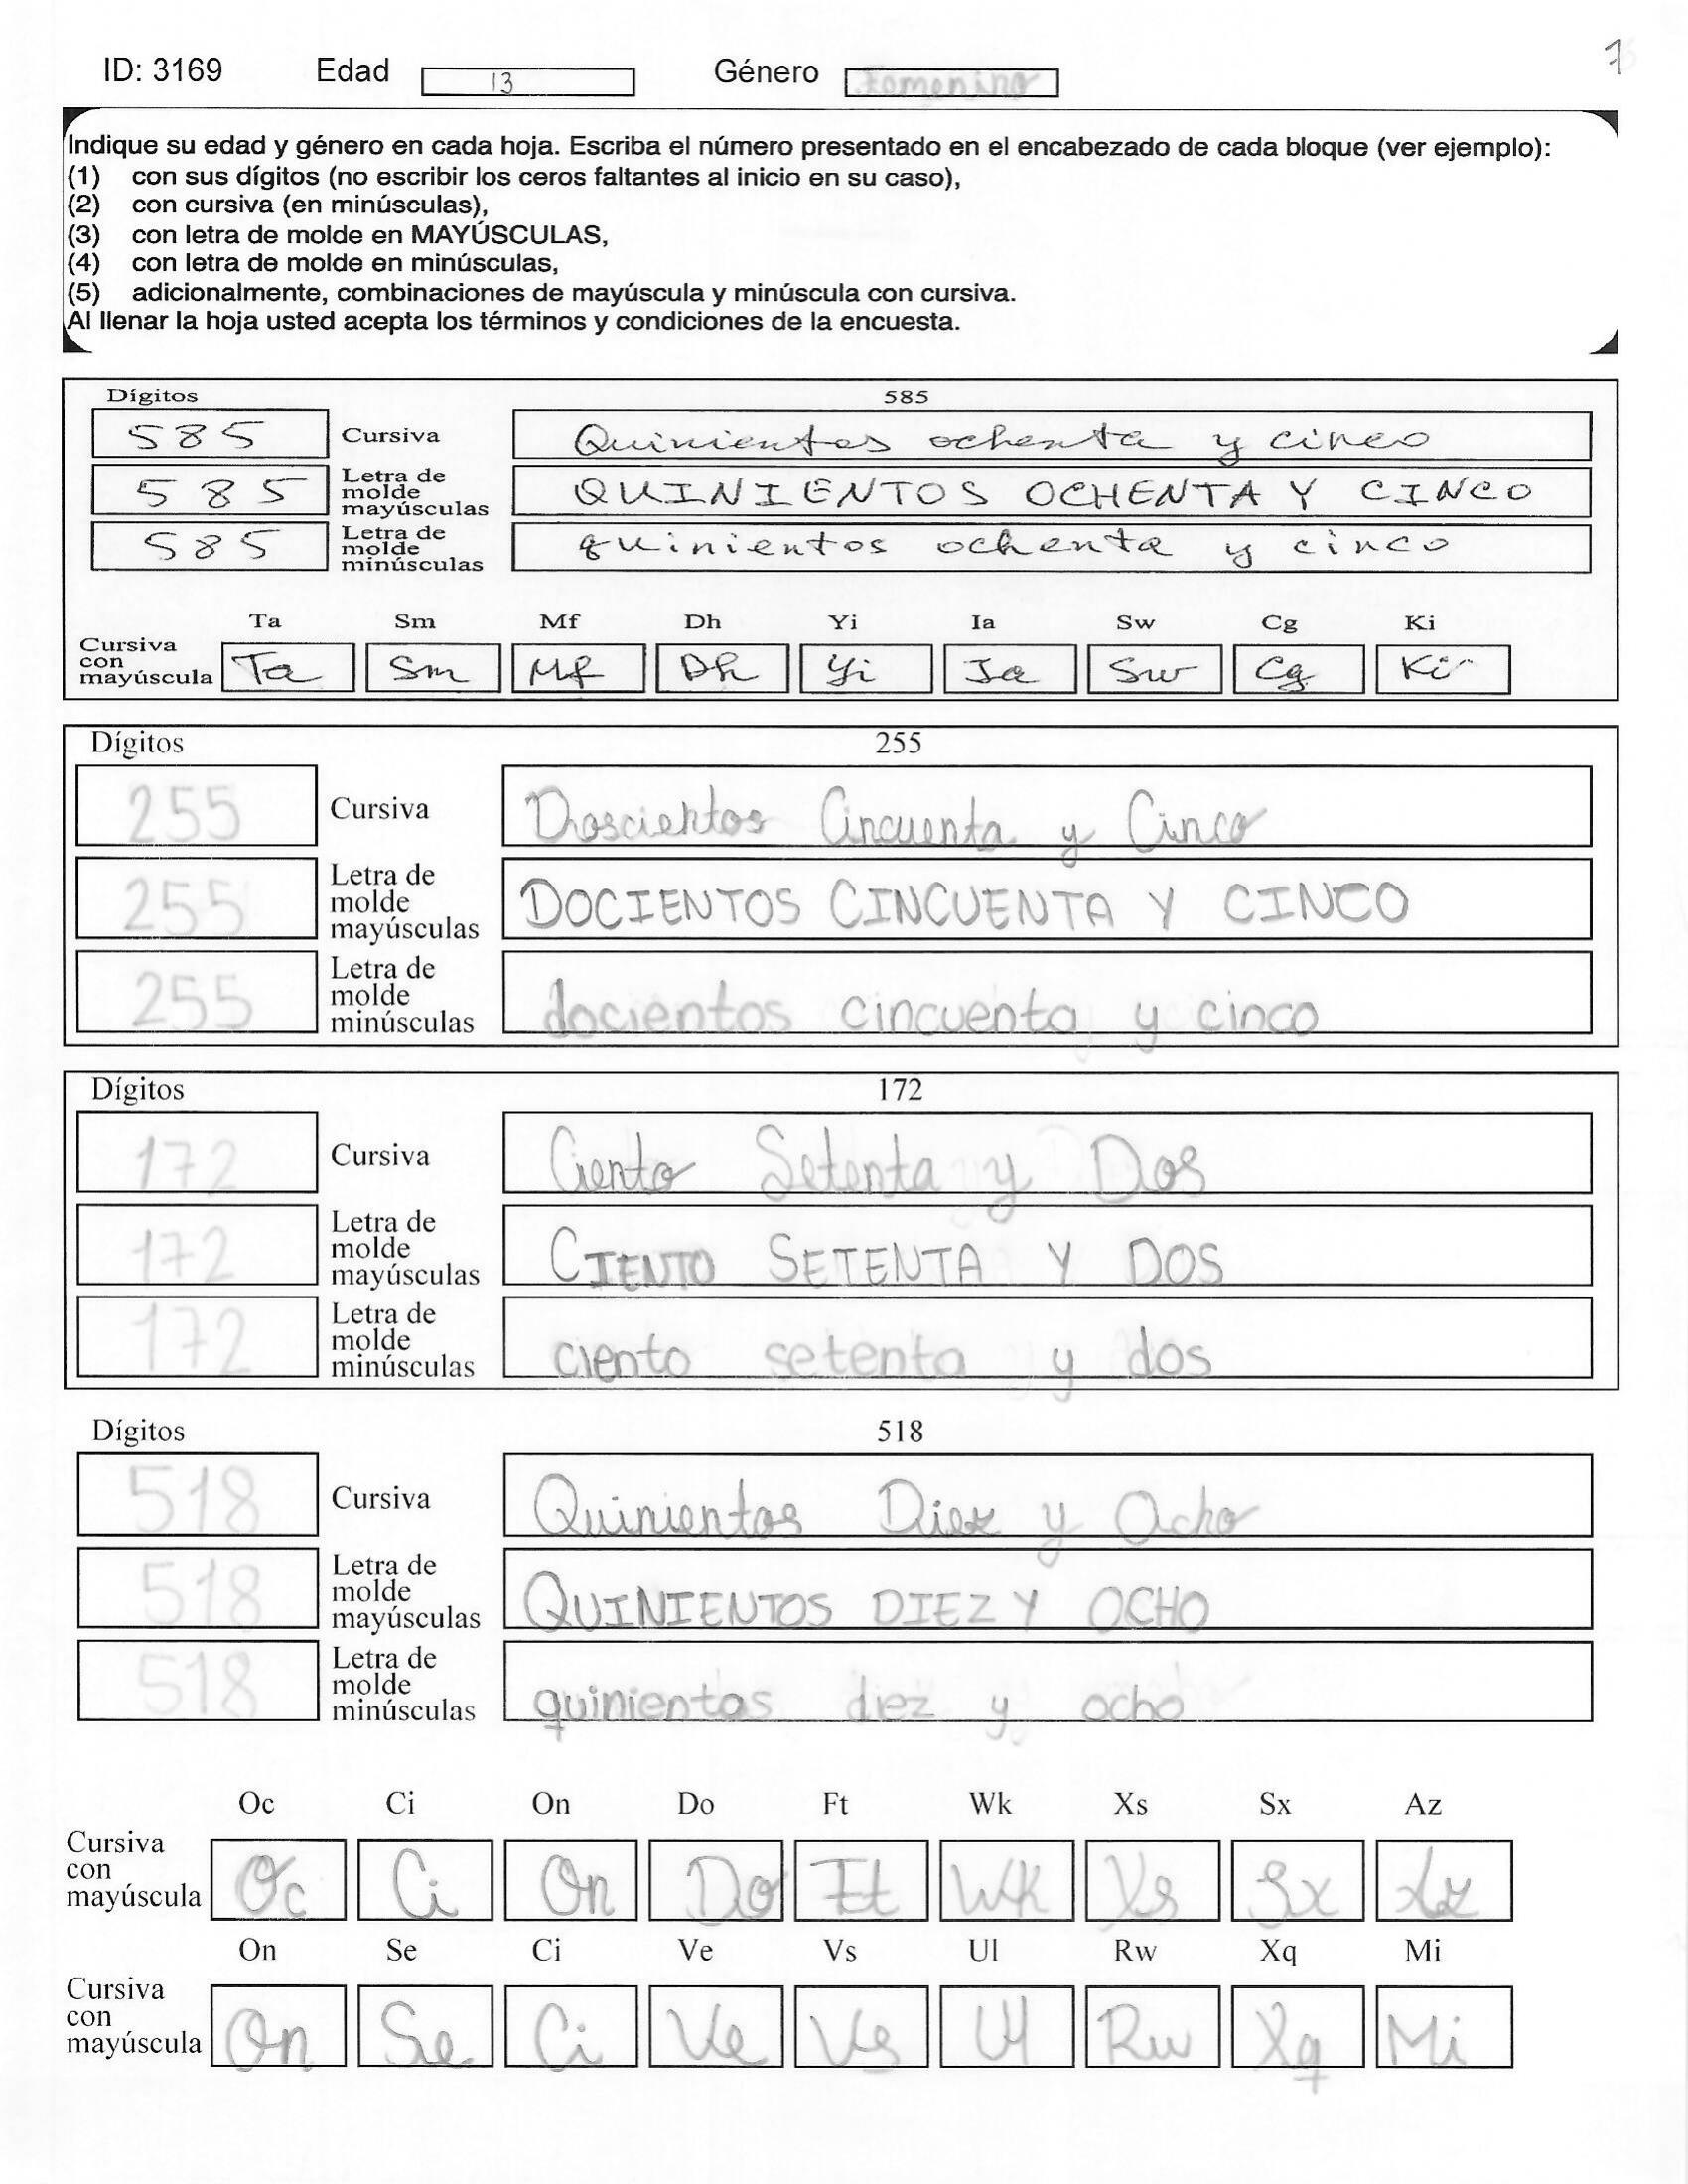 ID: 3169 Edad 13 Género Femenino 7
Indique su edad y género en cada hoja. Escriba el número presentado en el encabezado de cada bloque (ver ejemplo):
(1) con sus dígitos (no escribir los ceros faltantes al inicio en su caso),
(2) con cursiva (en minúsculas),
(3) con letra de molde en MAYÚSCULAS,
(4) con letra de molde en minúsculas,
(5) adicionalmente, combinaciones de mayúscula y minúscula con cursiva.
Al llenar la hoja usted acepta los términos y condiciones de la encuesta.
Dígitos 585
585 Cursiva Quinientos ochenta y cinco
585 Letra de molde mayúsculas QUINIENTOS OCHENTA Y CINCO
585 Letra de molde minúsculas quinientos ochenta y cinco
Ta Sm Mf Dh Yi Ia Sw Cg Ki
Cursiva con mayúscula Ta Sm Mf Dh Yi Ia Sw Cg Ki
Dígitos 255
255 Cursiva Doscientos Cincuenta y Cinco
255 Letra de molde mayúsculas DOCIENTOS CINCUENTA Y CINCO
255 Letra de molde minúsculas docientos cincuenta y cinco
Dígitos 172
172 Cursiva Ciento Setenta y Dos
172 Letra de molde mayúsculas CIENTO SETENTA Y DOS
172 Letra de molde minúsculas ciento setenta y dos
Dígitos 518
518 Cursiva Quinientos Diez y Ocho
518 Letra de molde mayúsculas QUINIENTOS DIEZ Y OCHO
518 Letra de molde minúsculas quinientos diez y ocho
Oc Ci On Do Ft Wk Xs Sx Az
Cursiva con mayúscula Oc Ci On Do Ft Wk Xs Sx Az
On Se Ci Ve Vs Ul Rw Xq Mi
Cursiva con mayúscula On Se Ci Ve Vs Ul Rw Xq Mi